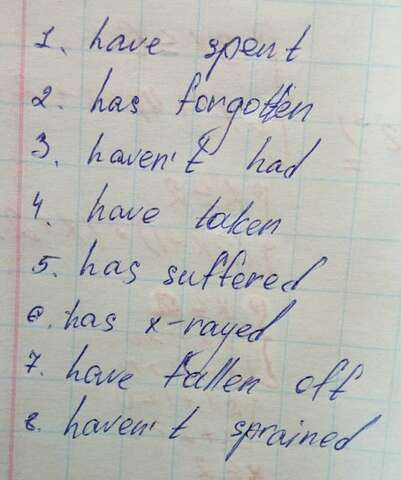 1. have spent
2. has forgotten
3. haven't had
4. have taken
5. has suffered
6. has x-rayed
7. have fallen off
8. haven't sprained